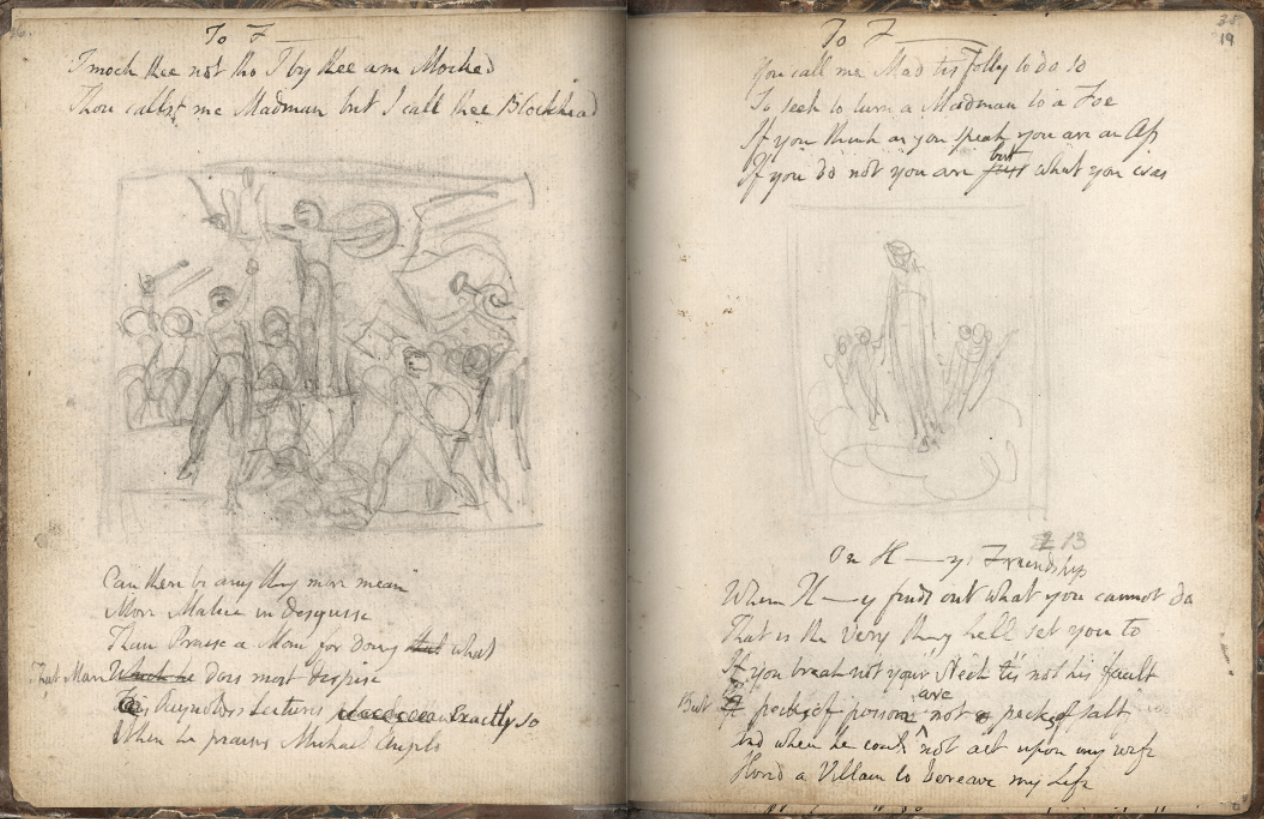 To F———
I mock thee not tho I by thee am Mocked
Thou callst me Madman but I call thee Blockhead
Can there be any thing more mean
More Malice in disguise
Than Praise a Man for doing that what
That Man Which he does most despise
This Reynolds Lectures Exactly so
When he praises Michael Angelo
38
19
To F———
You call me Mad tis Folly to do so
To seek to turn a Madman to a Foe
If you think as you speak you are an Ass
If you do not you are just but what you was
13
On H——ys Friendship
When H——y finds out what you cannot do
That is the Very thing hell set you to
If you break not your Neck tis not his fault
But pecks of poison are not pecks of salt
And when he could not act upon my wife
Hired a Villain to bereave my Life